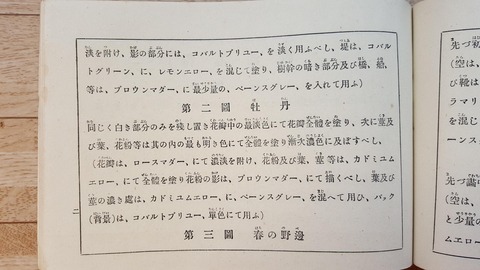 淡を附け、影の部分には、コバルトブリユー、を淡く用ふべし、堤は、コバル
トグリーン、に、レモンエロー、を混じて塗り、樹幹の暗き部分及び橋、船、
等は、ブロウンマダー、に最少量の、ペーンスグレー、を入れて用ふ)
第二圖 牡丹
同じく白き部分のみを残し置き花瓣中の最淡色にて花瓣全體を塗り、次に莖及
び葉、花粉等は其の内の最も明き色にて全體を塗り漸次濃色に及ぼすべし、
(花瓣は、ロースマダー、にて濃淡を附け、花粉及び葉、莖等は、カドミユム
エロー、にて全體を塗り花粉の影は、ブロウンマダー、にて描くべし、葉及び
莖の濃き處は、カドミユムエロー、に、ペーンスグレー、を混へて用ひ、バック
(背景)は、コバルトブリユー、單色にて用ふ)
第三圖 春の野邊
二
先づ
(空は、
び靴は
ラマリ
を混じ
ーン、
先づ
(空は、
と少量の
ムエロ